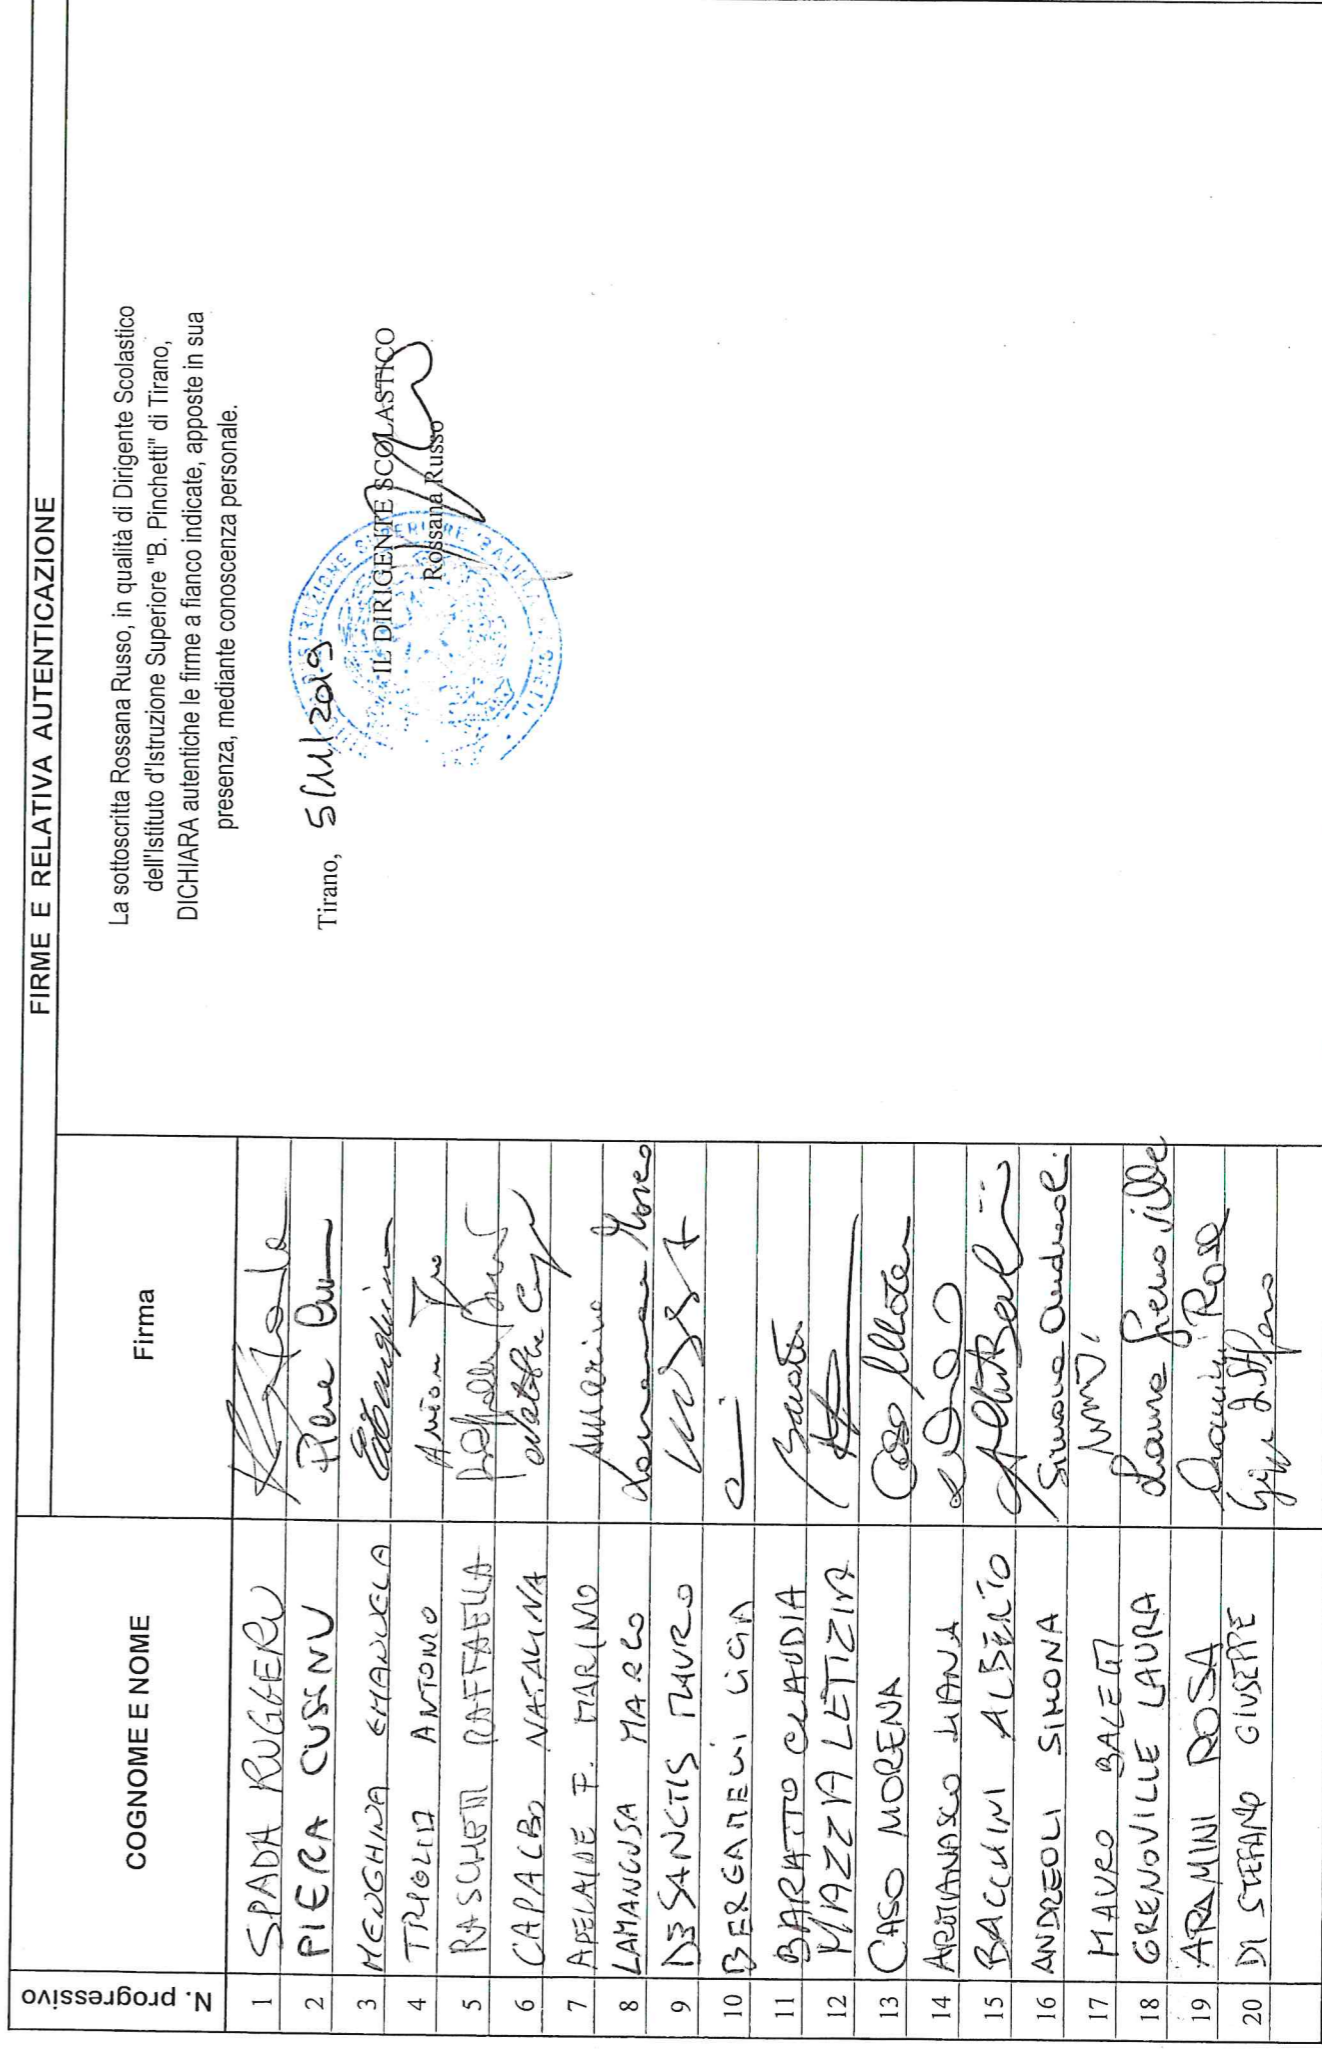 FIRME E RELATIVA AUTENTICAZIONE
N. progressivo
COGNOME E NOME
Firma
1 SPADA RUGGERO
2 PIERA CUSINU Piera
3 MENGHINA EMANUELA
4 TRIGLIA ANTONIO
5 RASCHETTI RAFFAELLA Raffaella
6 CAPALBO NATALINA
7 APELAIDE F. MARINO Marino
8 LAMANCUSA MARCO Lamancusa Marco
9 DE SANCTIS MAURO
10 BERGAMELLI LIGIA
11 BARATTO CLAUDIA Baratto
12 MAZZA LETIZIA
13 CASO MORENA Caso Morena
14 LIANA
15 BACCHINI ALBERTO
16 ANDREOLI SIMONA Simona Andreoli
17 MAURO BALETTI
18 GRENOVILLE LAURA Laura Grenoville
19 ARAMINI ROSA Aramini Rosa
20 DI STEFANO GIUSEPPE
La sottoscritta Rossana Russo, in qualità di Dirigente Scolastico
dell'Istituto d'Istruzione Superiore "B. Pinchetti" di Tirano,
DICHIARA autentiche le firme a fianco indicate, apposte in sua
presenza, mediante conoscenza personale.
Tirano, 5/11/2019
IL DIRIGENTE SCOLASTICO
Rossana Russo